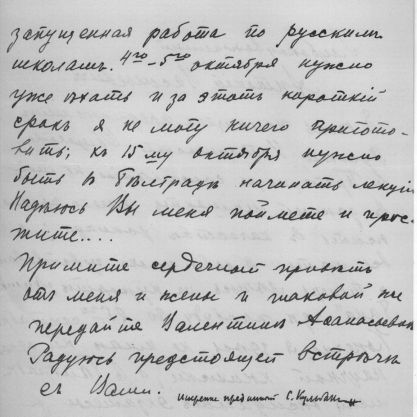 запущенная работа по русскимъ
школамъ. 4го-5го октября нужно
уже ѣхать и за этотъ короткій
срокъ я не могу ничего пригото-
вить; къ 15му октября нужно
быть въ Бѣлградѣ начинать лекціи
Надѣюсь Вы меня поймете и прос-
тите....
Примите сердечной привѣтъ
отъ меня и жены и таковой же
передайте Валентинѣ Аѳанасьевнѣ
Радуюсь предстоящей встрѣчѣ
съ Вами. искренно преданный С.